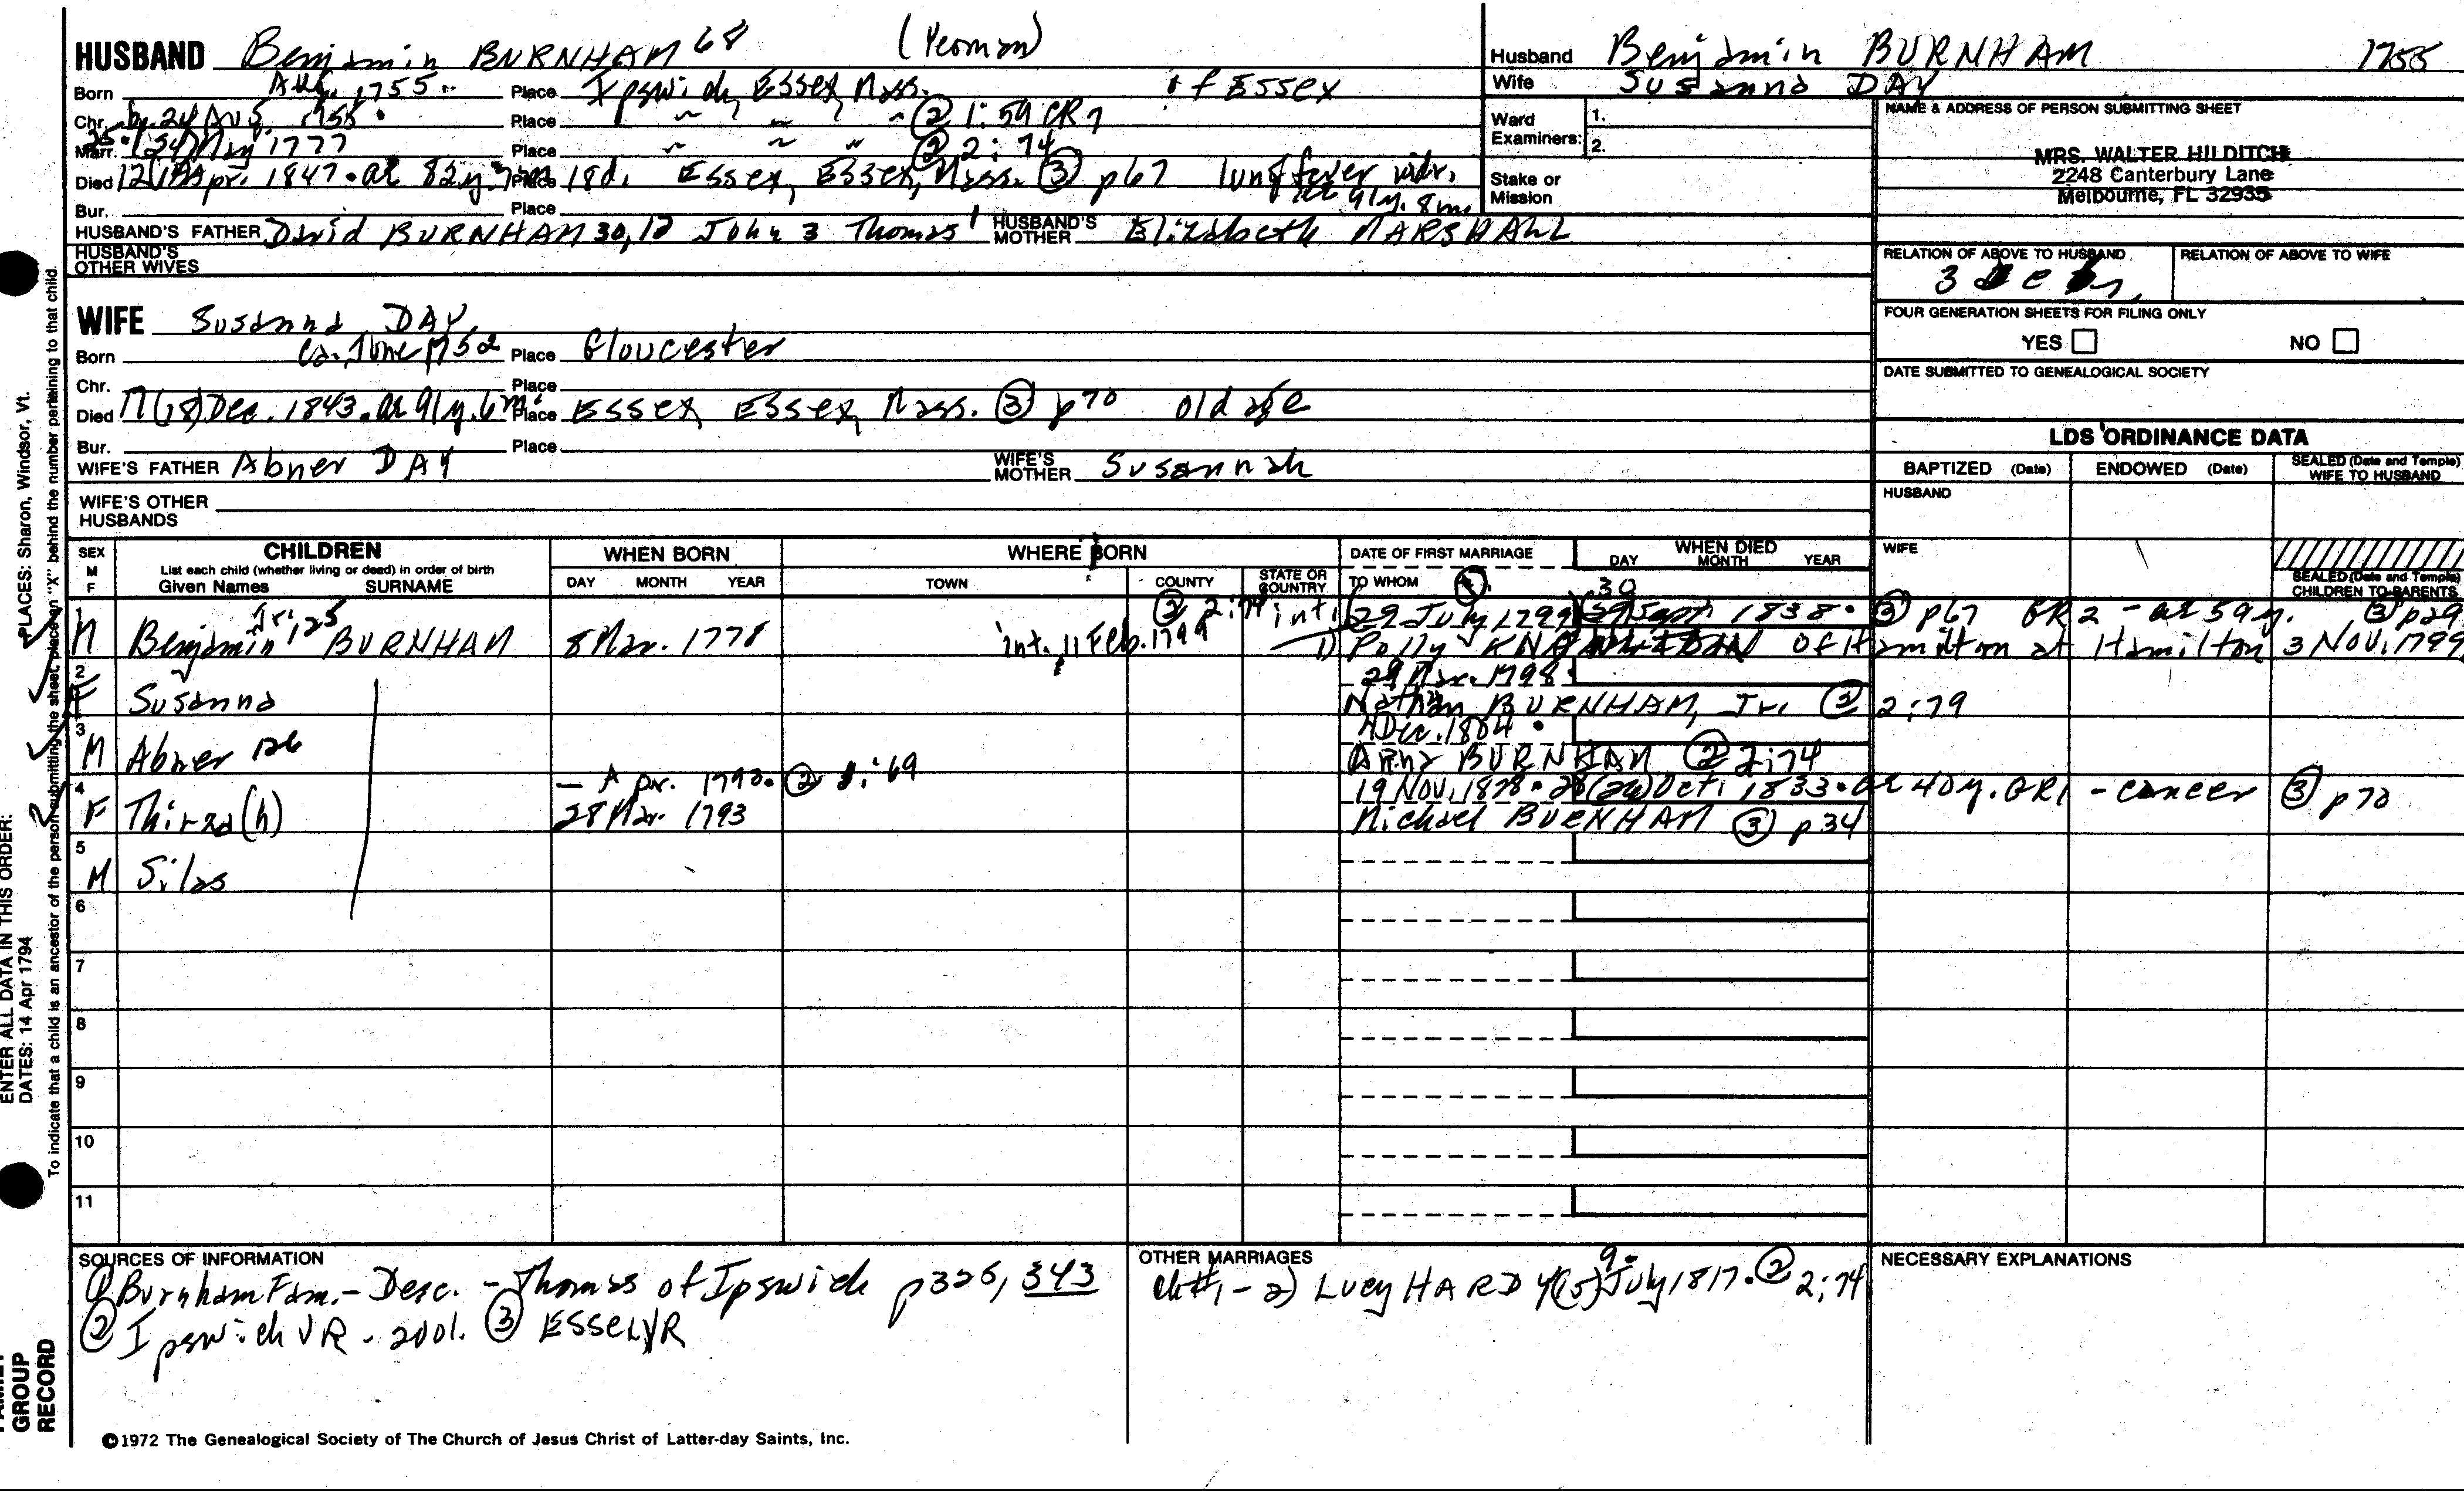 HUSBAND Benjamin BURNHAM 68 (Yeoman)
Born Aug. 1755 Place Ipswich, Essex, Mass. of Essex
Chr. 24 Aug. 1755 Place " " " ② 1:59 CR7
Marr. 25 (24) May 1777 Place " " " ② 2:74
Died 12 Apr. 1847 ae 82y. 18d. Place Essex, Essex, Mass. ③ p67 lung fever widr.
ae 91y. 8m.
Bur. Place
HUSBAND'S FATHER David BURNHAM 30, 12 John 3 Thomas 1 HUSBAND'S MOTHER Elizabeth MARSHALL
HUSBAND'S OTHER WIVES
Husband Benjamin BURNHAM 1755
Wife Susanna DAY
Ward Examiners: 1.
2.
Stake or Mission
NAME & ADDRESS OF PERSON SUBMITTING SHEET
MRS. WALTER HILDITCH
2248 Canterbury Lane
Melbourne, FL 32935
RELATION OF ABOVE TO HUSBAND RELATION OF ABOVE TO WIFE
3
FOUR GENERATION SHEETS FOR FILING ONLY
YES NO
DATE SUBMITTED TO GENEALOGICAL SOCIETY
WIFE Susanna DAY
Born ca. June 1752 Place Gloucester
Chr. Place
Died 17 (18) Dec. 1843. ae 91y. 6m. Place Essex, Essex, Mass. ③ p70 old age
Bur. Place
WIFE'S FATHER Abner DAY WIFE'S MOTHER Susannah
WIFE'S OTHER HUSBANDS
LDS ORDINANCE DATA
BAPTIZED (Date) ENDOWED (Date) SEALED (Date and Temple) WIFE TO HUSBAND
HUSBAND
WIFE
SEALED (Date and Temple) CHILDREN TO PARENTS
SEX M F
CHILDREN
List each child (whether living or dead) in order of birth
Given Names SURNAME
WHEN BORN
DAY MONTH YEAR
WHERE BORN
TOWN COUNTY STATE OR COUNTRY
DATE OF FIRST MARRIAGE
TO WHOM
WHEN DIED
DAY MONTH YEAR
30
1 Jr. ② 2:74 int. 29 July 1799 (29) Sept. 1838. ③ p67 GR2 - ae 59y. ③ p29
M Benjamin 125 BURNHAM 8 Mar. 1778 int. 11 Feb. 1799 1) Polly of Hamilton at Hamilton 3 Nov. 1799
2 29 Mar. 1798.
F Susanna Nathan BURNHAM, Jr. ② 2:79
3 Dec. 1804.
M Abner 126 Anna BURNHAM ② 2:74
4 — Apr. 1793. ② 1:69 19 Nov. 28 (26) Oct. 1833. ae 40y. GR1 - cancer ③ p70
F Thirza(h) 28 Mar. 1793 Michael BURNHAM ③ p34
5
M Silas
6
7
8
9
10
11
SOURCES OF INFORMATION
① Burnham Fam. - Desc. - Thomas of Ipswich p326, 343
② Ipswich VR - 2vol. ③ Essex VR
OTHER MARRIAGES
ch#1 - 2) Lucy HARDY 9. (15) July 1817. ② 2:74
NECESSARY EXPLANATIONS
©1972 The Genealogical Society of The Church of Jesus Christ of Latter-day Saints, Inc.
ENTER ALL DATA IN THIS ORDER:
DATES: 14 Apr 1794
PLACES: Sharon, Windsor, Vt.
To indicate that a child is an ancestor of the person submitting the sheet, place an "X" behind the number pertaining to that child.
GROUP
RECORD